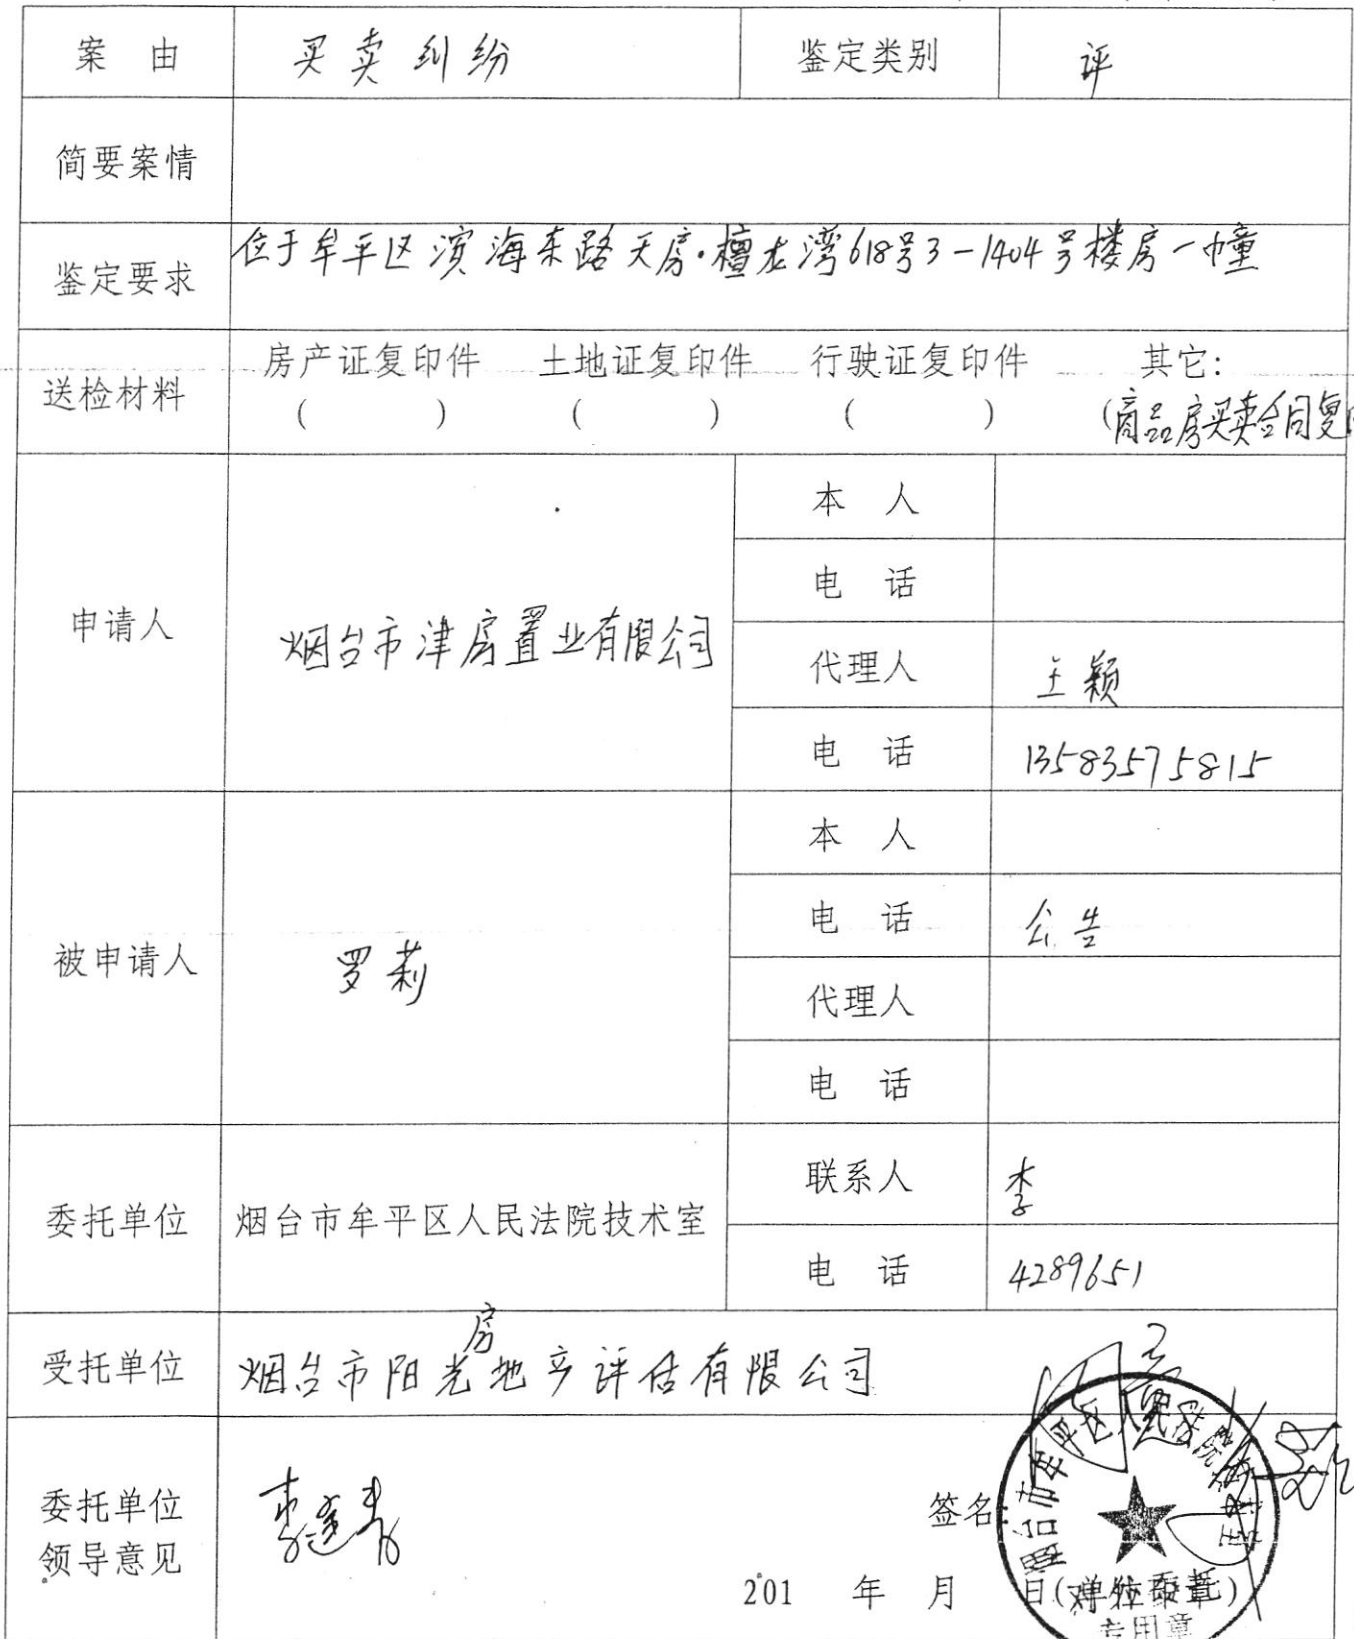 案 由 买卖纠纷 鉴定类别 评
简要案情
鉴定要求 位于牟平区滨海东路天房·檀龙湾618号3-1404号楼房一幢
送检材料 房产证复印件 土地证复印件 行驶证复印件 其它:
( ) ( ) ( ) (商品房买卖合同复
申请人 烟台市津房置业有限公司
本 人
电 话
代理人 王颖
电 话 13583575815
被申请人 罗莉
本 人
电 话 公告
代理人
电 话
委托单位 烟台市牟平区人民法院技术室
联系人 李
电 话 4289651
受托单位 烟台市阳光房地产评估有限公司
委托单位
领导意见
签名:
201 年 月 日(单位印章)
烟台市牟平区人民法院技术室
对外委托
专用章